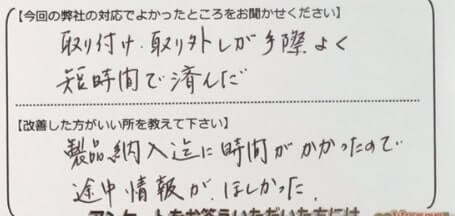 【今回の弊社の対応でよかったところをお聞かせください】
取り付け．取り外しが手際よく
短時間で済んだ
【改善した方がいい所を教えて下さい】
製品納入迄に時間がかかったので
途中情報が、ほしかった。
アンケートをお答えいただいた方には